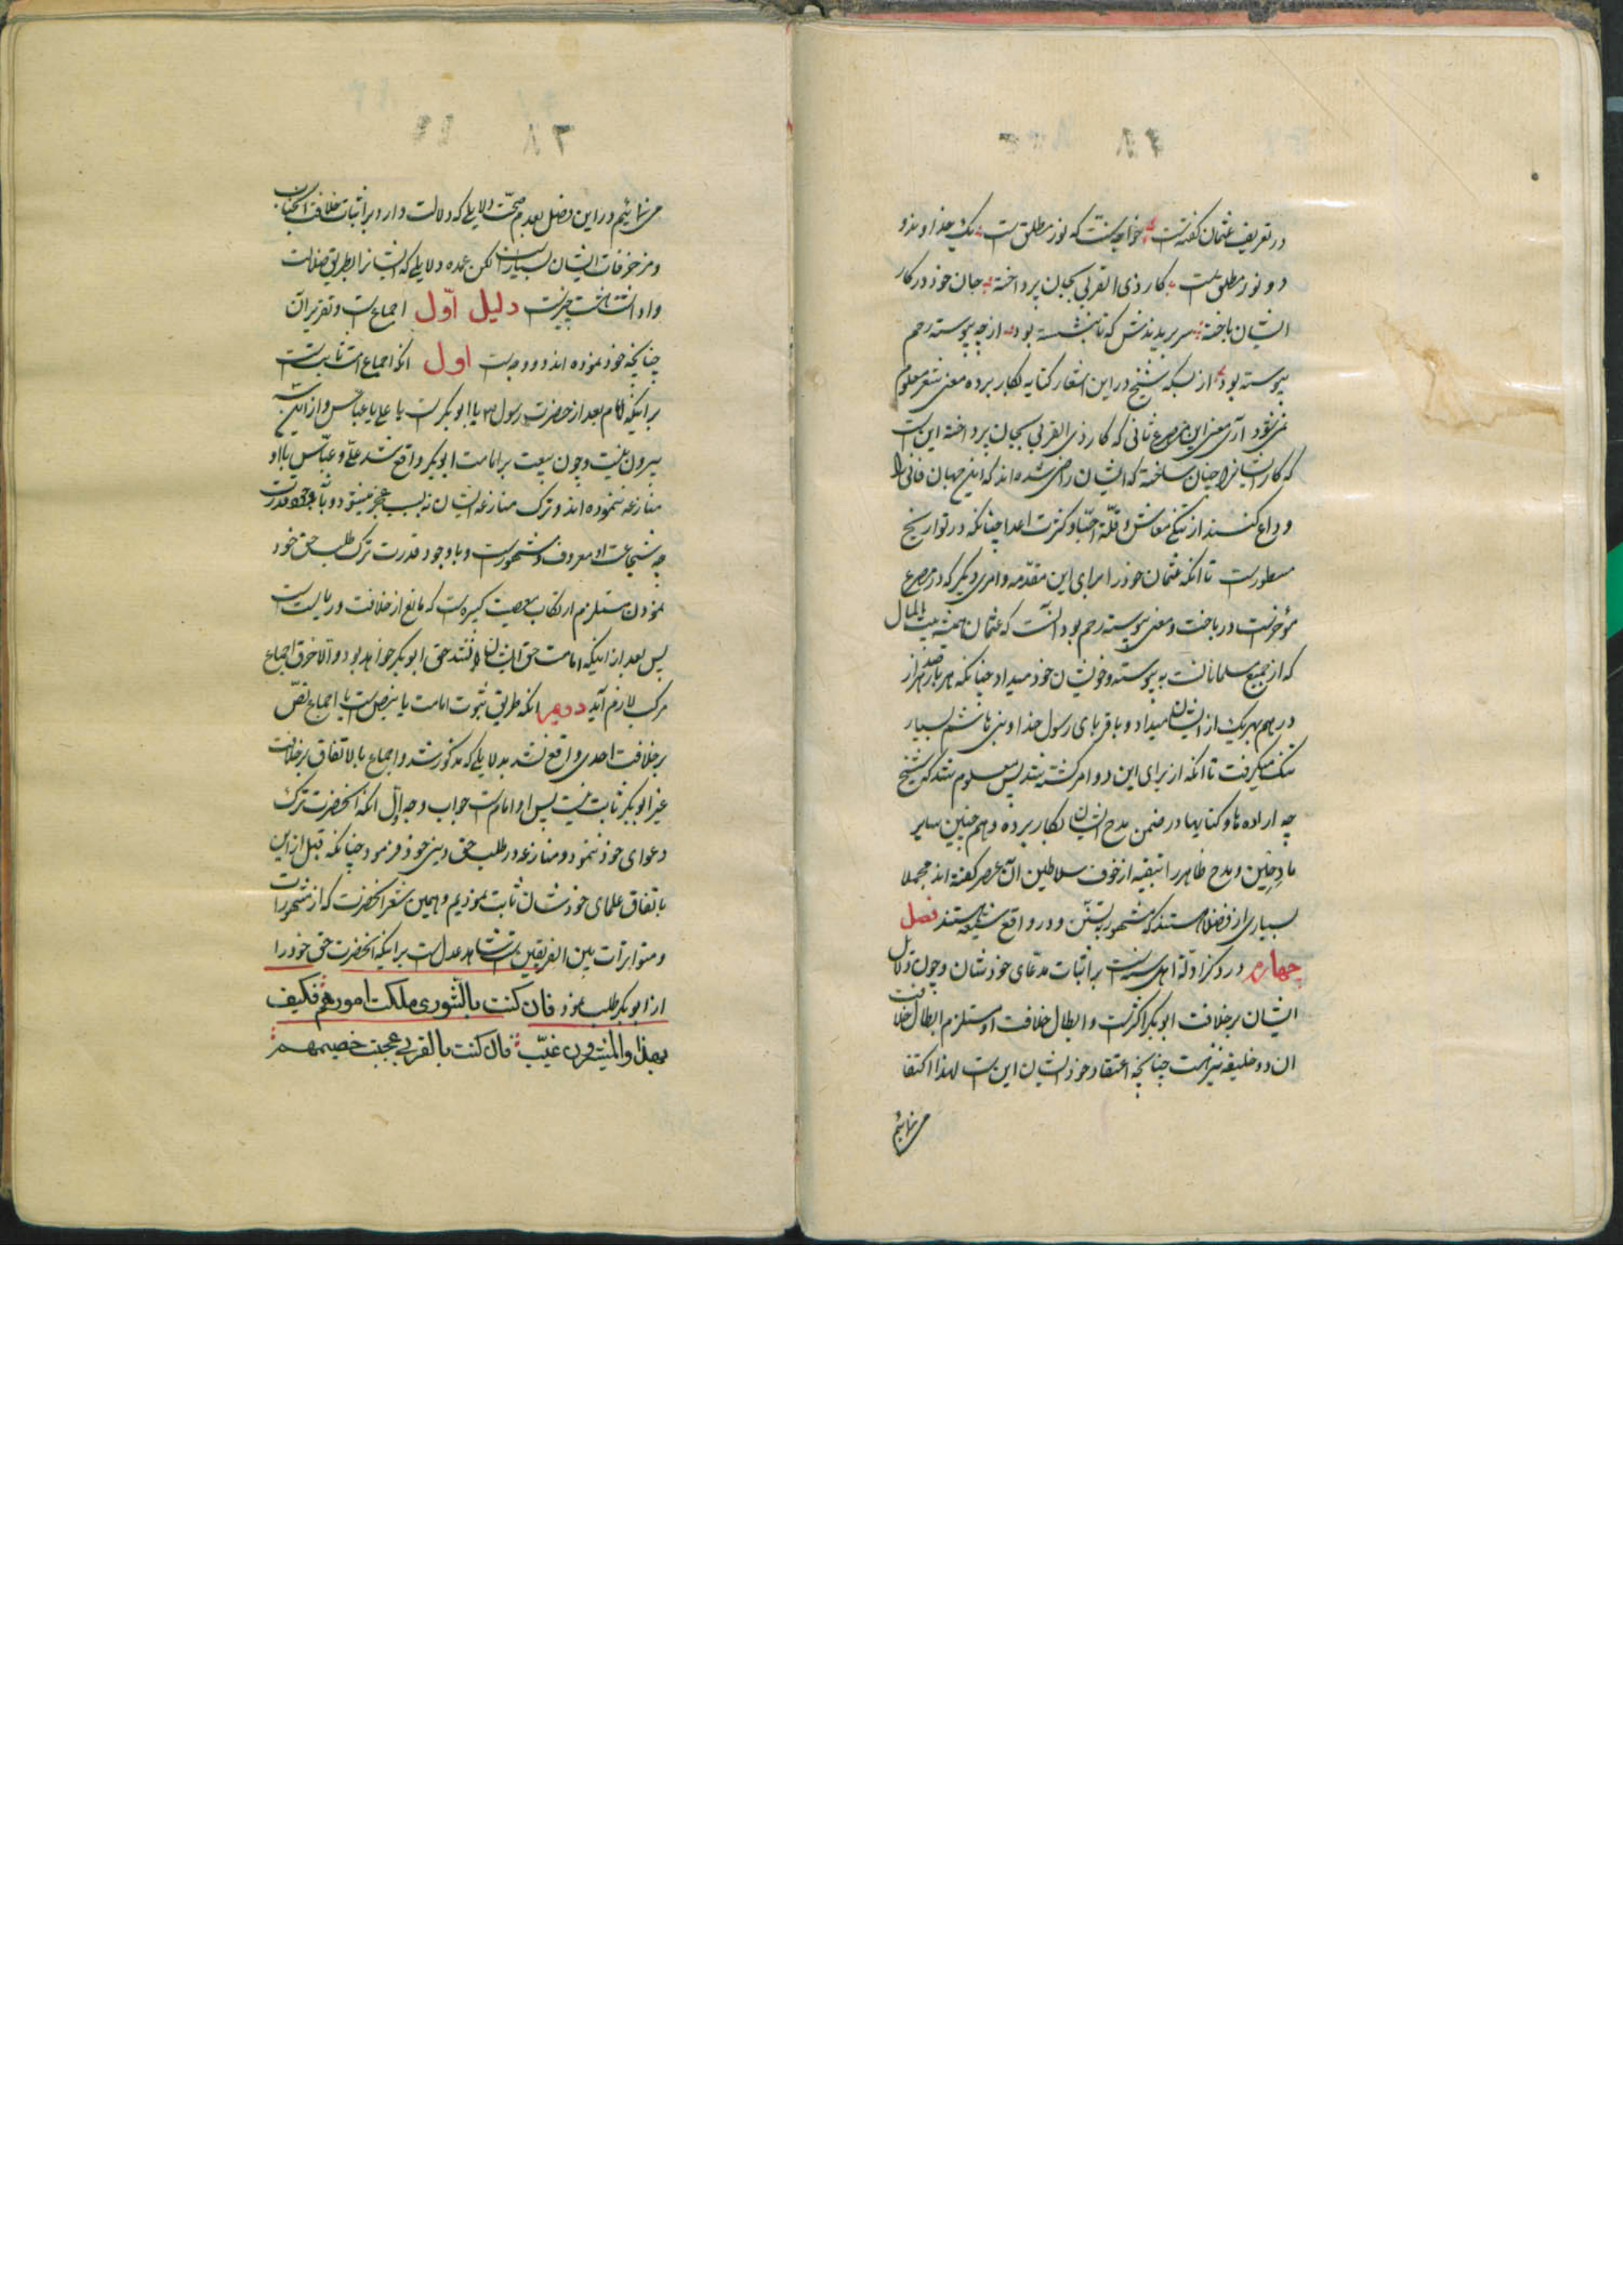 در تعریف عثمان گفته است خواجهٔ سنت که نور مطلق است یک خداوند و
دو نور مطلق است کار ذی القربی بجان پرداخته جان خود در کار
ایشان باخته سر بریدندش که تا بنشسته بود از چه پیوسته رحم
پیوسته بود از بسکه شیخ در این اشعار کنایه بکار برده معنی شعر معلوم
نمی شود آری معنی این مصرع ثانی که کار ذی القربی بجان پرداخته این است
که کار ایشانرا چنان ساخته که ایشان راضی شده اند که این جهان فانی را
وداع کنند از تنگی معاش و قلّة احبّا و کثرت اعدا چنانکه در تواریخ
مسطور است تا آنکه عثمان خود را برای این مقدّمه و امری دیگر که در مصرع
مؤخر است در باخت و معنی پیوسته رحم بود آنست که عثمان همیشه بیت المال
که از جمیع مسلمانان است به پیوسته و خویشان خود میداد چنانکه هر بار صد هزار
درهم بهر یک از ایشان میداد و باقربای رسول خدا و بنی هاشم بسیار
تنک میگرفت تا آنکه از برای این دو امر کشته شد پس معلوم شد که شیخ
چه اراده ها و کنایها در ضمن مدح ایشان بکار برده و هم چنین سایر
مادحین و مدح ظاهر را بتقیه از خوف سلاطین آن عصر گفته اند مجملا
بسیاری از فضلا هستند که مشهور بتسنّن و در واقع شیعه هستند فصل
چهارم در ذکر ادلّهٔ اهل سنت بر اثبات مدّعای خودشان و چون دلایل
ایشان بر خلافت ابوبکر اکثر است و ابطال خلافت او مستلزم ابطال خلافت
ان دو خلیفه نیز هست چنانچه اعتقاد خود ایشان این است لهذا اکتفا
می نمائیم
می نمائیم در این فصل بعدم صحّت دلایلی که دلالت دارد بر اثبات خلافت
و مزخرفات ایشان بسیار است لکن عمده دلایلی که ایشانرا بطریق ضلالت
وا داشته است چیز است دلیل اوّل اجماع است و تقریر آن
چنانچه خود نموده اند دو وجه است اول آنکه اجماع امت ثابت است
بر اینکه امام بعد از حضرت رسول ص یا ابوبکر است یا علی یا عباس و از این سه
بیرون نیست و چون بیعت بر امامت ابوبکر واقع شد علی و عبّاس با او
منازعه ننموده اند و ترک منازعه ایشان نه بسبب عجز میشود و با وجود قدرت
چه شجاعت او معروف و مشهور است و با وجود قدرت ترک طلب حق خود
نمودن مستلزم ارتکاب معصیت کبیره است که مانع از خلافت و ریاست است
پس بعد از اینکه امامت حق ایشان نباشد حق ابوبکر خواهد بود و الا خرق اجماع
مرکب لازم آید دویم آنکه طریق ثبوت امامت یا بنص است یا اجماع نصّ
بر خلافت احدی واقع نشد بدلایلی که مذکور شد و اجماع بالاتفاق بر خلافت
غیر ابوبکر ثابت نیست پس او امام است جواب وجه اوّل آنکه آنحضرت ترک
دعوای خود ننمود و منازعه در طلب حق دینی خود فرمود چنانکه قبل از این
باتفاق علمای خودشان ثابت نمودیم و همین شعر آنحضرت که از مشهورات
و متواترات بین الفریقین است شاهد عدل است بر اینکه آنحضرت حق خود را
از ابوبکر طلب نمود فان کنت بالشوری ملکت امورهم فکیف
بهذا والمشیرون غیّب فان کنت بالقربی حججت خصیمهم